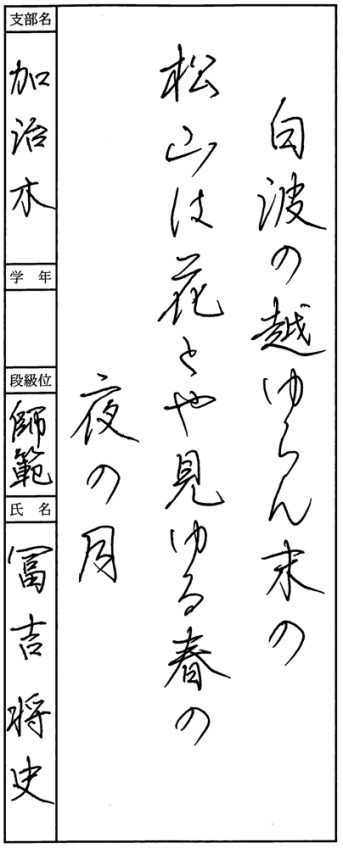 白波の越ゆらん末の
松山は花とや見ゆる春の
夜の月
支部名
加治木
学年
段級位
師範
氏名
冨吉将史